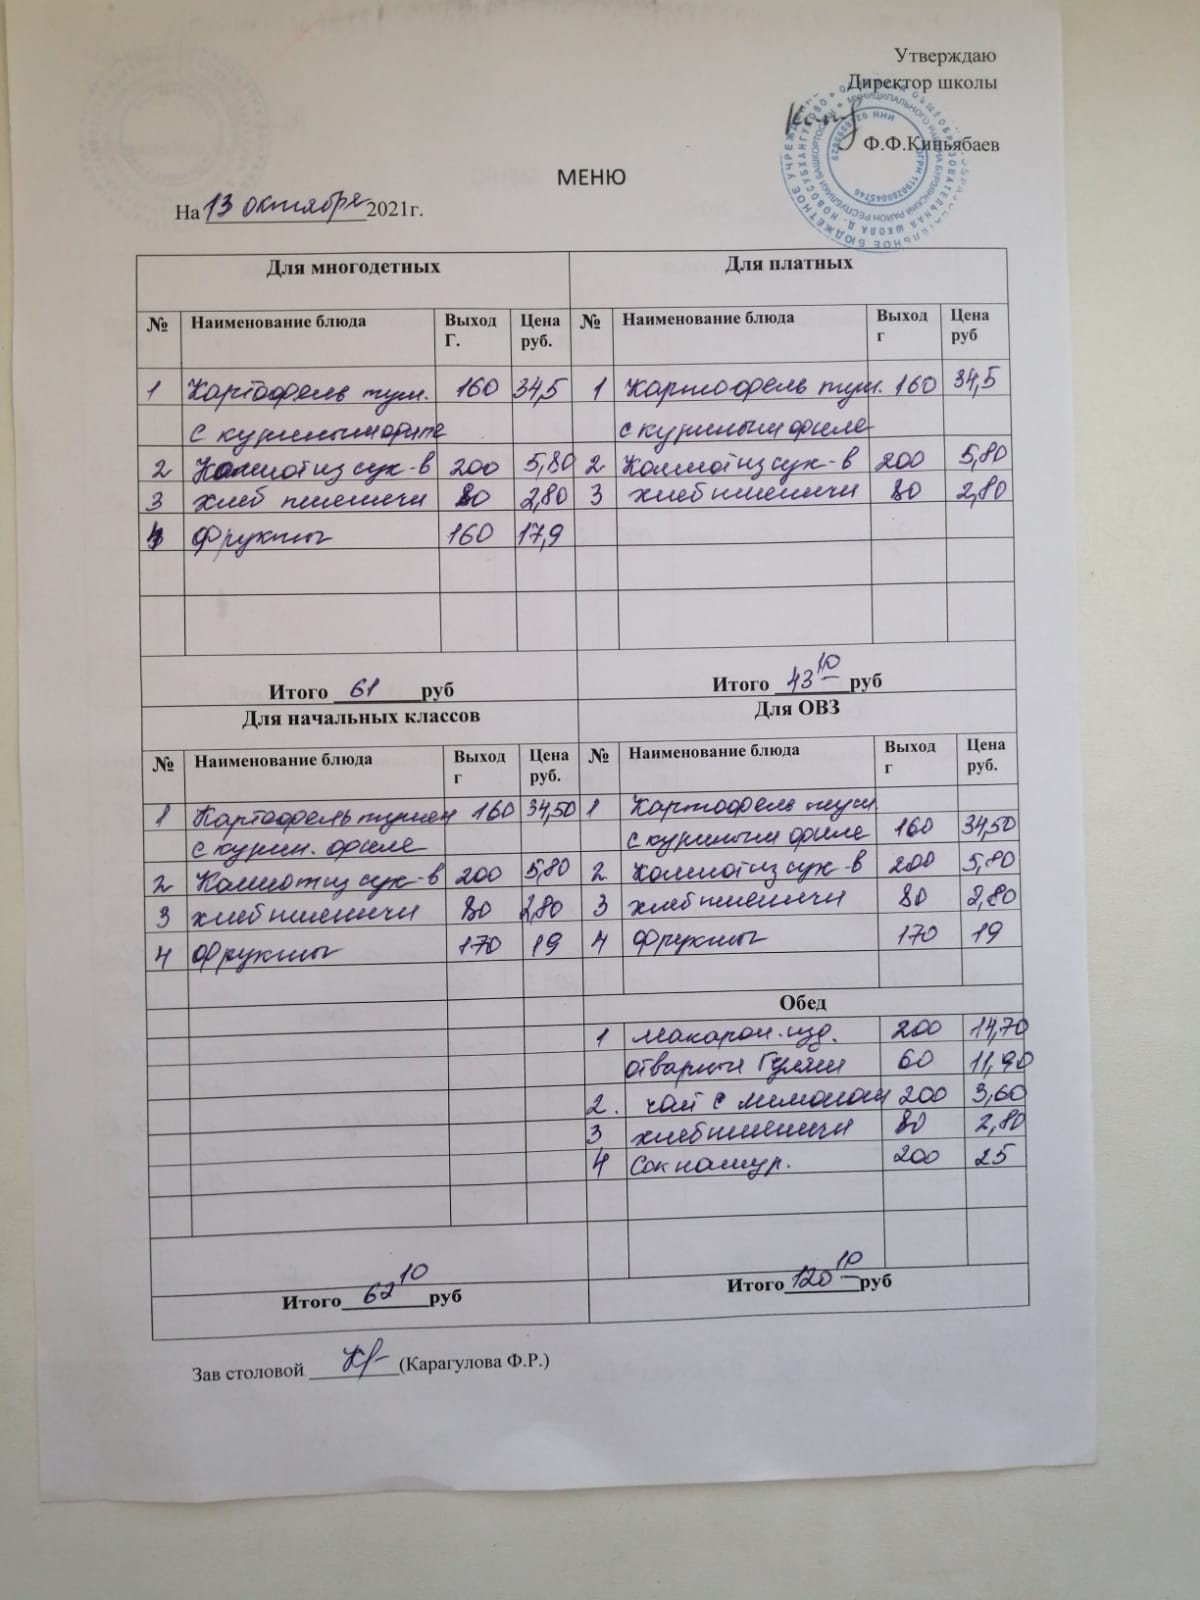 Утверждаю
Директор школы
Ф.Ф.Киньябаев
МЕНЮ
На 13 октября 2021г.
Для многодетных Для платных
№ Наименование блюда Выход Г. Цена руб. № Наименование блюда Выход г Цена руб
1 Картофель туш. 160 34,5 1 Картофель туш. 160 34,5
с куриным филе с куриным филе
2 Компот из сух-в 200 5,80 2 Компот из сух-в 200 5,80
3 хлеб пшеничн 80 2,80 3 хлеб пшеничн 80 2,80
4 Фрукты 160 17,9
Итого 61 руб Итого 43 10 руб
Для начальных классов Для ОВЗ
№ Наименование блюда Выход г Цена руб. № Наименование блюда Выход г Цена руб.
1 Картофель тушен 160 34,50 1 Картофель туш
с курин. филе с куриным филе 160 34,50
2 Компот из сух-в 200 5,80 2 Компот из сух-в 200 5,80
3 хлеб пшеничн 80 2,80 3 хлеб пшеничн 80 2,80
4 Фрукты 170 19 4 Фрукты 170 19
Обед
1 Макарон. изд. 200 14,70
отварные Гуляш 60 11,90
2. чай с лимоном 200 3,60
3 хлеб пшеничн 80 2,80
4 Сок натур. 200 25
Итого 62 10 руб Итого 120 10 руб
Зав столовой (Карагулова Ф.Р.)